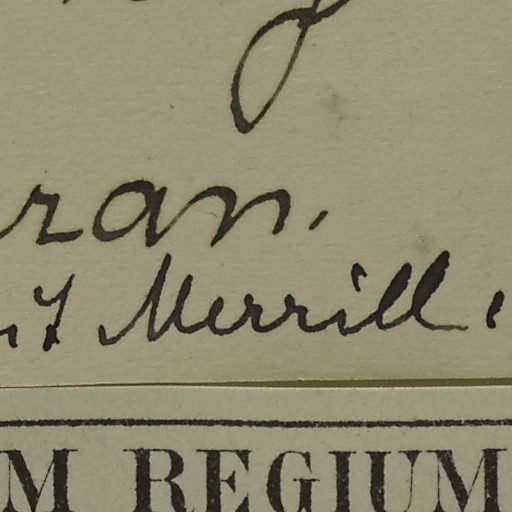 ran.
Merrill
M REGIUM